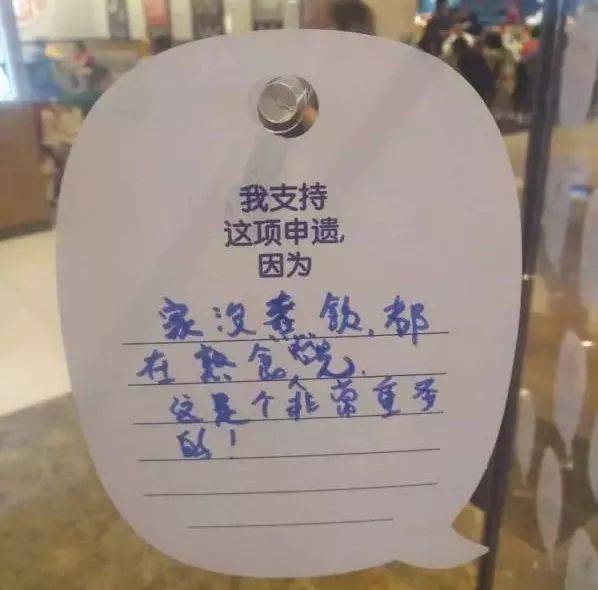 我支持
这项申遗,
因为
家没煮饮,都
在熟食吃.
这是个非常重多
的!